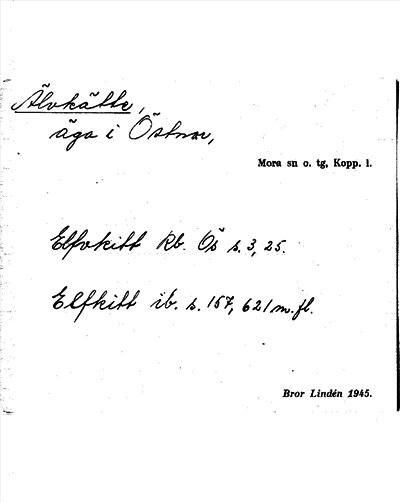 Älvkätte,
äga i Östnor,
Mora sn o. tg, Kopp. l.
Elfvkitt Rb. Ös s. 3, 25.
Elfkitt ib. s. 157, 621 m. fl.
Bror Lindén 1945.